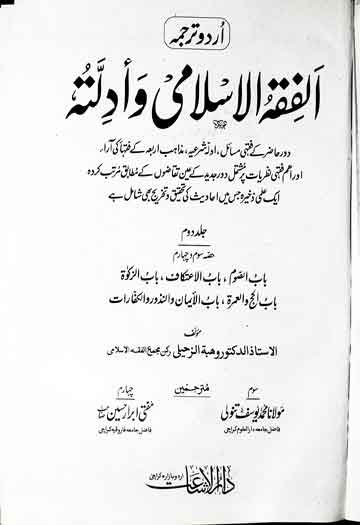 اُردو ترجمہ
الفِقهُ الاسلامی وَأدِلَّتُه
دورِ حاضر کے فقہی مسائل، ادلۂ شرعیہ، مذاہب اربعہ کے فقہا کی آراء
اور اہم فقہی نظریات پر مشتمل دورِ جدید کے عین تقاضوں کے مطابق مرتب کردہ
ایک علمی ذخیرہ جس میں احادیث کی تحقیق و تخریج بھی شامل ہے
جلد دوم
حصہ سوم و چہارم
بابُ الصوم، بابُ الاعتکاف، بابُ الزکوٰة
بابُ الحج والعمرة، بابُ الأیمان والنذور والکفارات
مؤلف
الاستاذ الدکتور وھبة الزحیلی رکن مجمع الفقه الاسلامی
مترجمین
سوم
مولانا محمد یوسف تنولی
فاضل جامعہ دارالعلوم کراچی
چہارم
مفتی ابرار حسین
فاضل جامعہ فاروقیہ کراچی
دارالاشاعت
اردو بازار کراچی